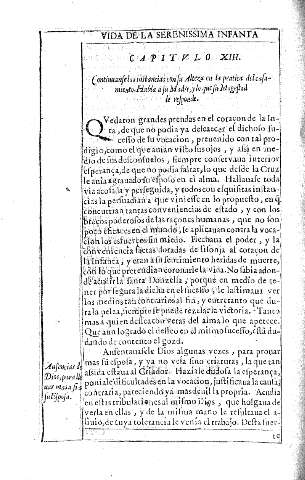 VIDA DE LA SERENISSIMA INFANTA
CAPITVLO XIII.
Continuanse las instancias con su Alteza en la pratica del casa-
miento. Habla a su Madre, y lo que su Magestad
le responde.
QVedaron grandes prendas en el coraçon de la In-
fanta, de que no podia ya descaecer el dichoso su-
cesso de su vocacion, preuenido con tal pro-
digio, como el que auian visto sus ojos, y assi en me-
dio de sus desconsuelos, siempre conseruaua interior
esperança, de que no podia faltar, lo que desde la Cruz
le auia agradado su esposo en el alma. Hallauase toda
via acosada y perseguida, y todos con esquisitas instan-
cias la persuadian a que viniesse en lo propuesto, en q̃
concurrian tantas conueniencias de estado, y con los
braços poderosos de las raçones humanas, que no son
poco eficaces en el mundo, le aplicauan contra la voca-
cion los esfuerços sin miedo. Flechaua el poder, y la
conueniencia saetas doradas de lisonja al coraçon de
la Infanta, y eran a su sentimiento heridas de muerte,
con lo que pretendian coronarle la vida. No sabia adon-
de acudir la santa Donzella, porque en medio de te-
ner por segura la dicha en el sucesso, le lastimaua ver
los medios tan contrarios al fin, y entretanto que du-
ra la pelea, siempre se puede rezelar la victoria. Tanto
mas a quien desea con veras del alma lo que apetece.
Que aun logrado el desseo en el mismo sucesso, està du-
dando de contento el gozo.
Ausentauasele Dios algunas vezes, para prouar
mas su esposa, y ya no veia sino criaturas, la que tan
assida estaua al Criador. Haziale dudosa la esperança,
ponia le dificultades en la vocacion, justificaua la causa
contraria, pareciendo ya mas debil la propria. Acudia
en estas tribulaciones al mismo Dios, que holgaua de
verla en ellas, y de la misma mano le resultaua el a-
liuio, de cuya tolerancia le venia el trabajo. Desta suer-
te
Ausencias de
Dios, para pro-
uar mas a su
esposa.